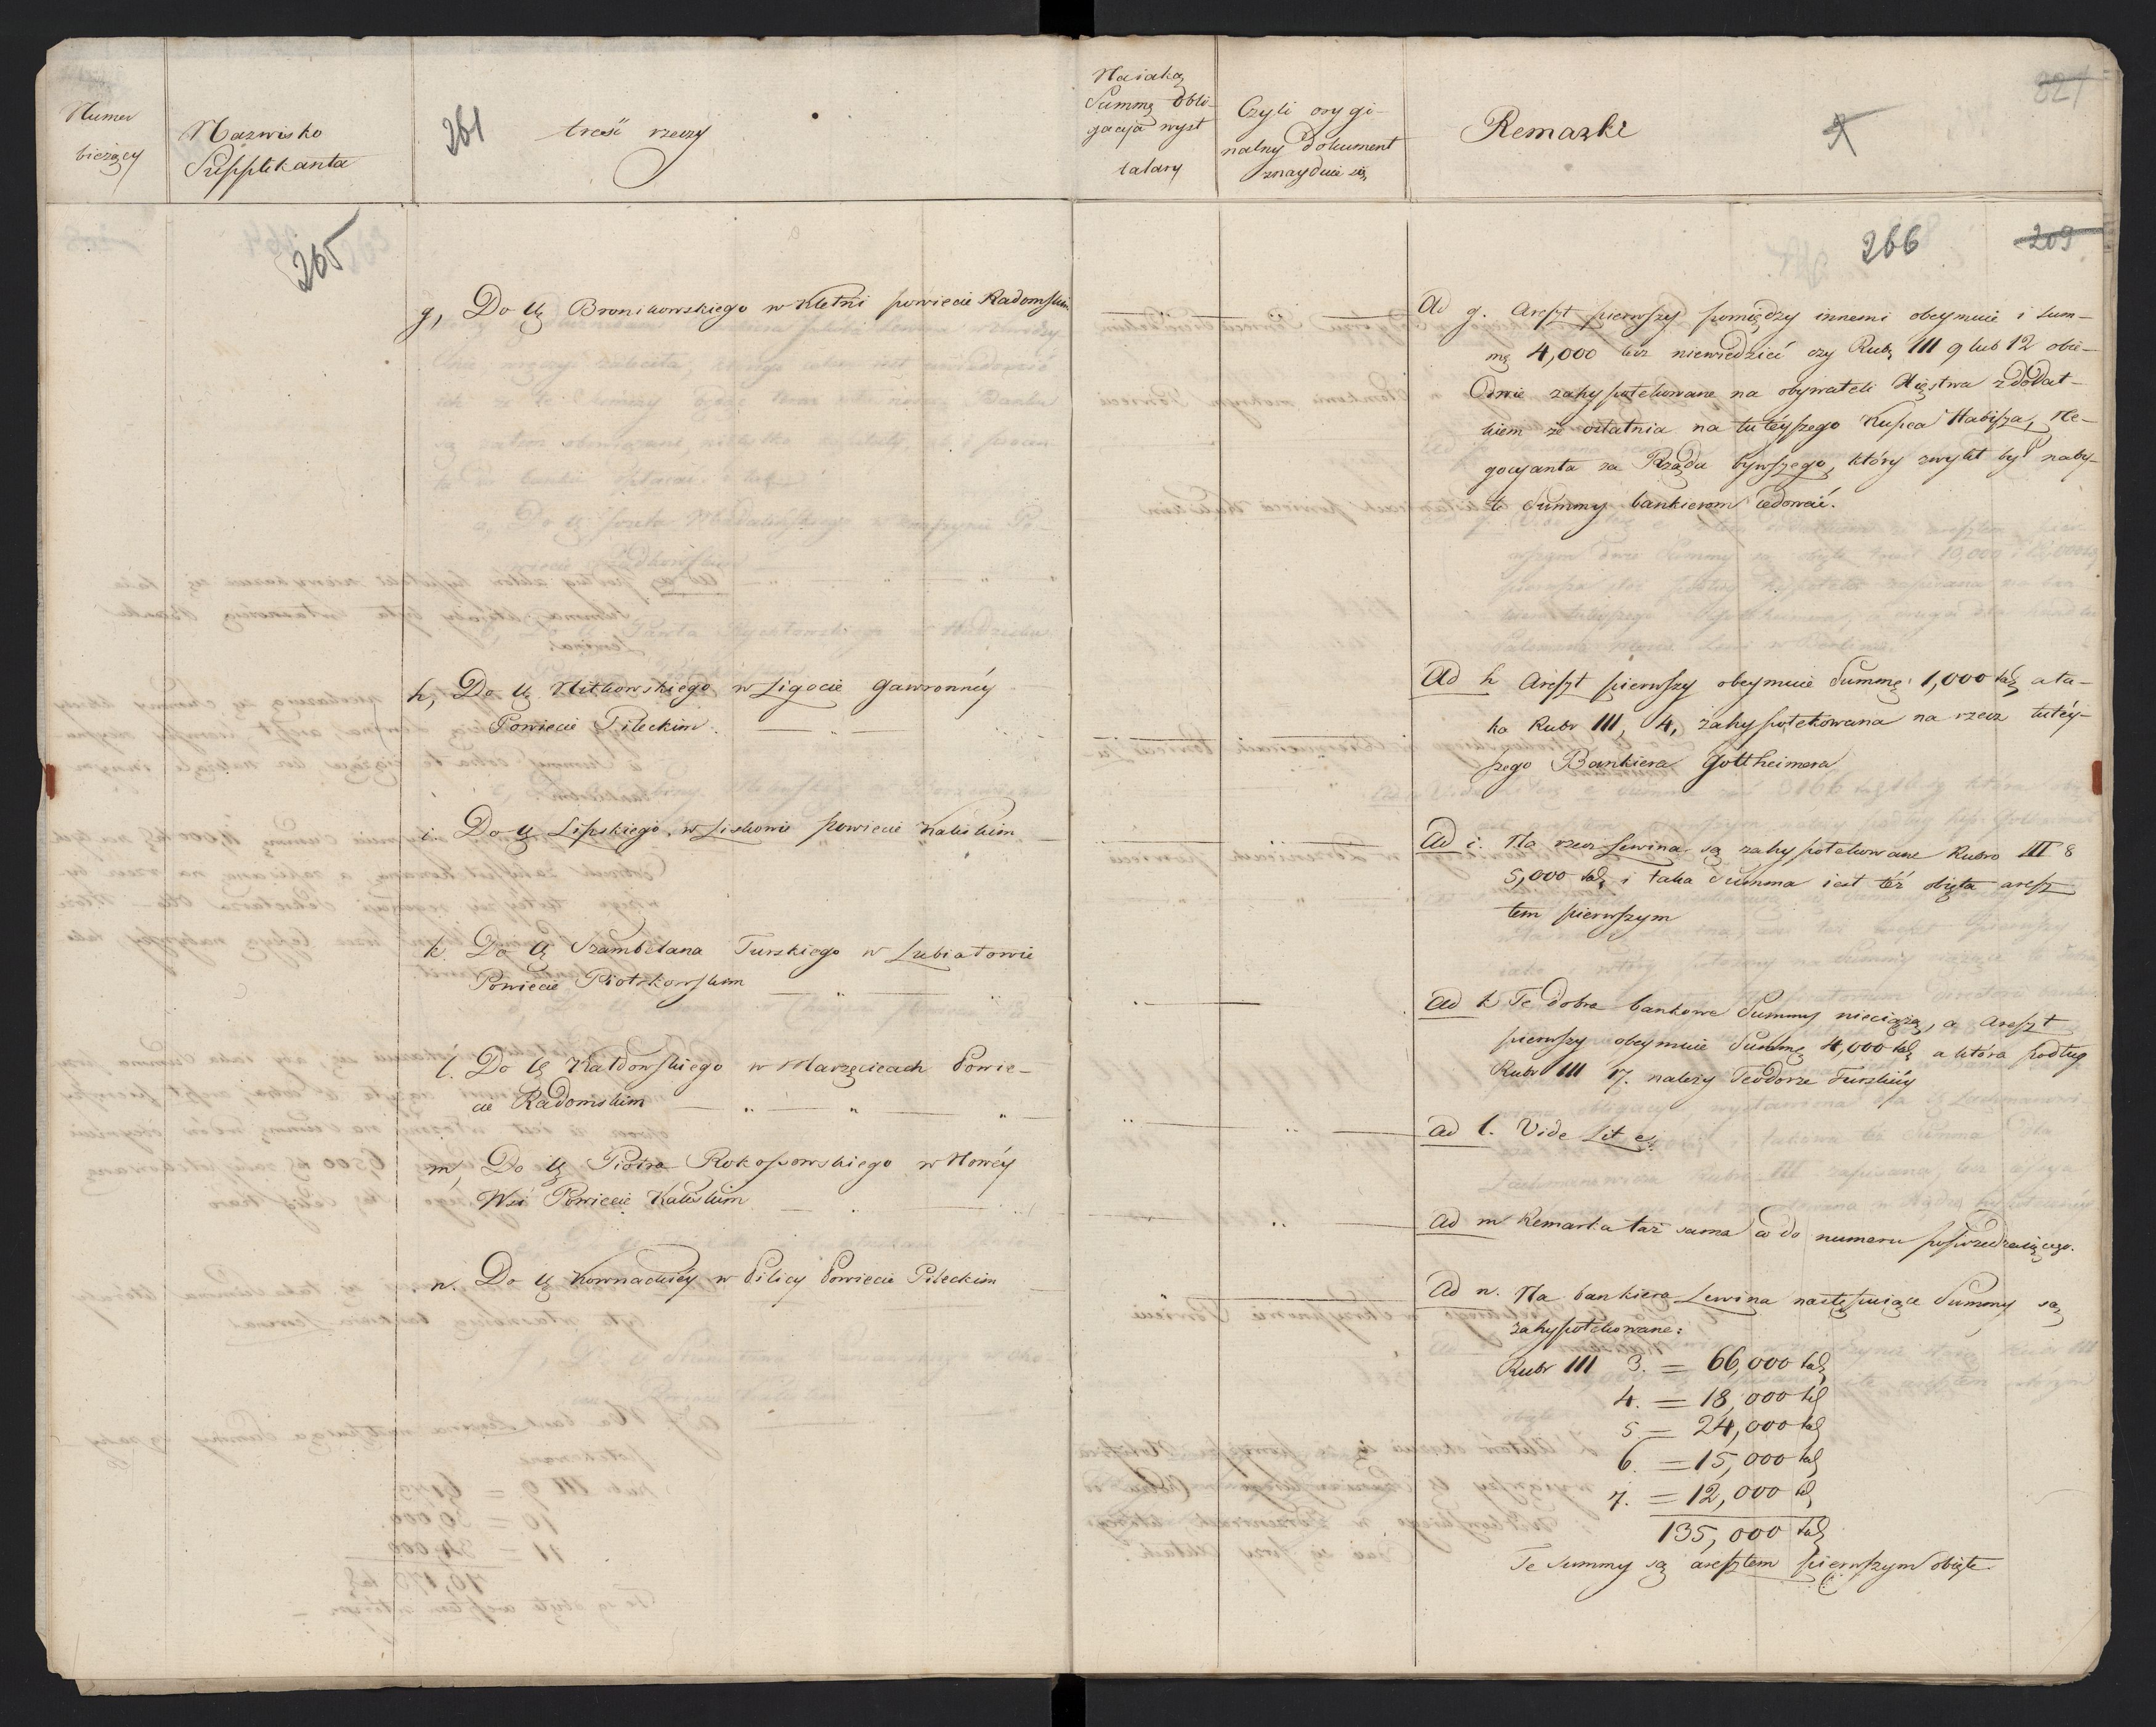 Numer
bieżący
Nazwisko
Supplikanta
261
treść rzeczy
265
g, Do Ur Bronikowskiego w Kletni powiecie Radomskim
h, Do Ur Nitkowskiego w Ligocie Gawronnéy
Powiecie Pileckim
i. Do Ur Lipskiego w Liskowie powiecie Kaliskim
k. Do Ur Szambelana Turskiego w Lubiatowie
Powiecie Piotrkowskim
l. Do Ur Kałdowskiego w Marzęcicach Powie-
cie Radomskim
m, Do Ur Piotra Rokossowskiego w Nowéy
Wsi Powiecie Kaliskim
n. Do Ur Kownackiéy w Pilicy Powiecie Pileckim
Na iaką
Summę obli-
gacyja wyst
talary
Czyli orygi-
nalny dokument
znayduie się
Remarki
321
266
209
Ad g. Areszt pierwszy pomiędzy innemi obeymuie i Sum-
mę 4,000 lecz niewiedzieć czy Rubr III 9 lub 12 obie-
dwie zahypotekowane na obywateli Xięstwa z dodat-
kiem że ostatnia na tutéyszego Kupca Habisza, Ne-
gocyanta za Rządu bywszego, który zwykł był naby-
te Summy bankierom cedować.
Ad h Areszt pierwszy obeymuie Summę 1,000 tal, a ta-
ka Rubr III, 4, zahypotekowana na rzecz tutéy-
szego Bankiera Gottheimera
Ad i. Na rzecz Lewina są zahypotekowane Rubro III 8
5,000 tal, i taka Summa iest téż obięta aresz
tem pierwszym
Ad k Te dobra bankowe Summy nieciążą, a Areszt
pierwszy obeymuie Summę 4,000 tal, a która podług
Rubr III 17. należy Teodorze Turskiéy
Ad l. Vide Lit e.
Ad m Remarka taż sama co do numeru poprzedzaiącego.
Ad n. Na bankiera Lewina następuiące Summy są
zahypotekowane:
Rubr III 3. = 66,000 tal
4. = 18,000 tal
5 = 24,000 tal
6. = 15,000 tal
7. = 12,000 tal
135,000 tal
Te Summy są aresztem pierwszym obięte.